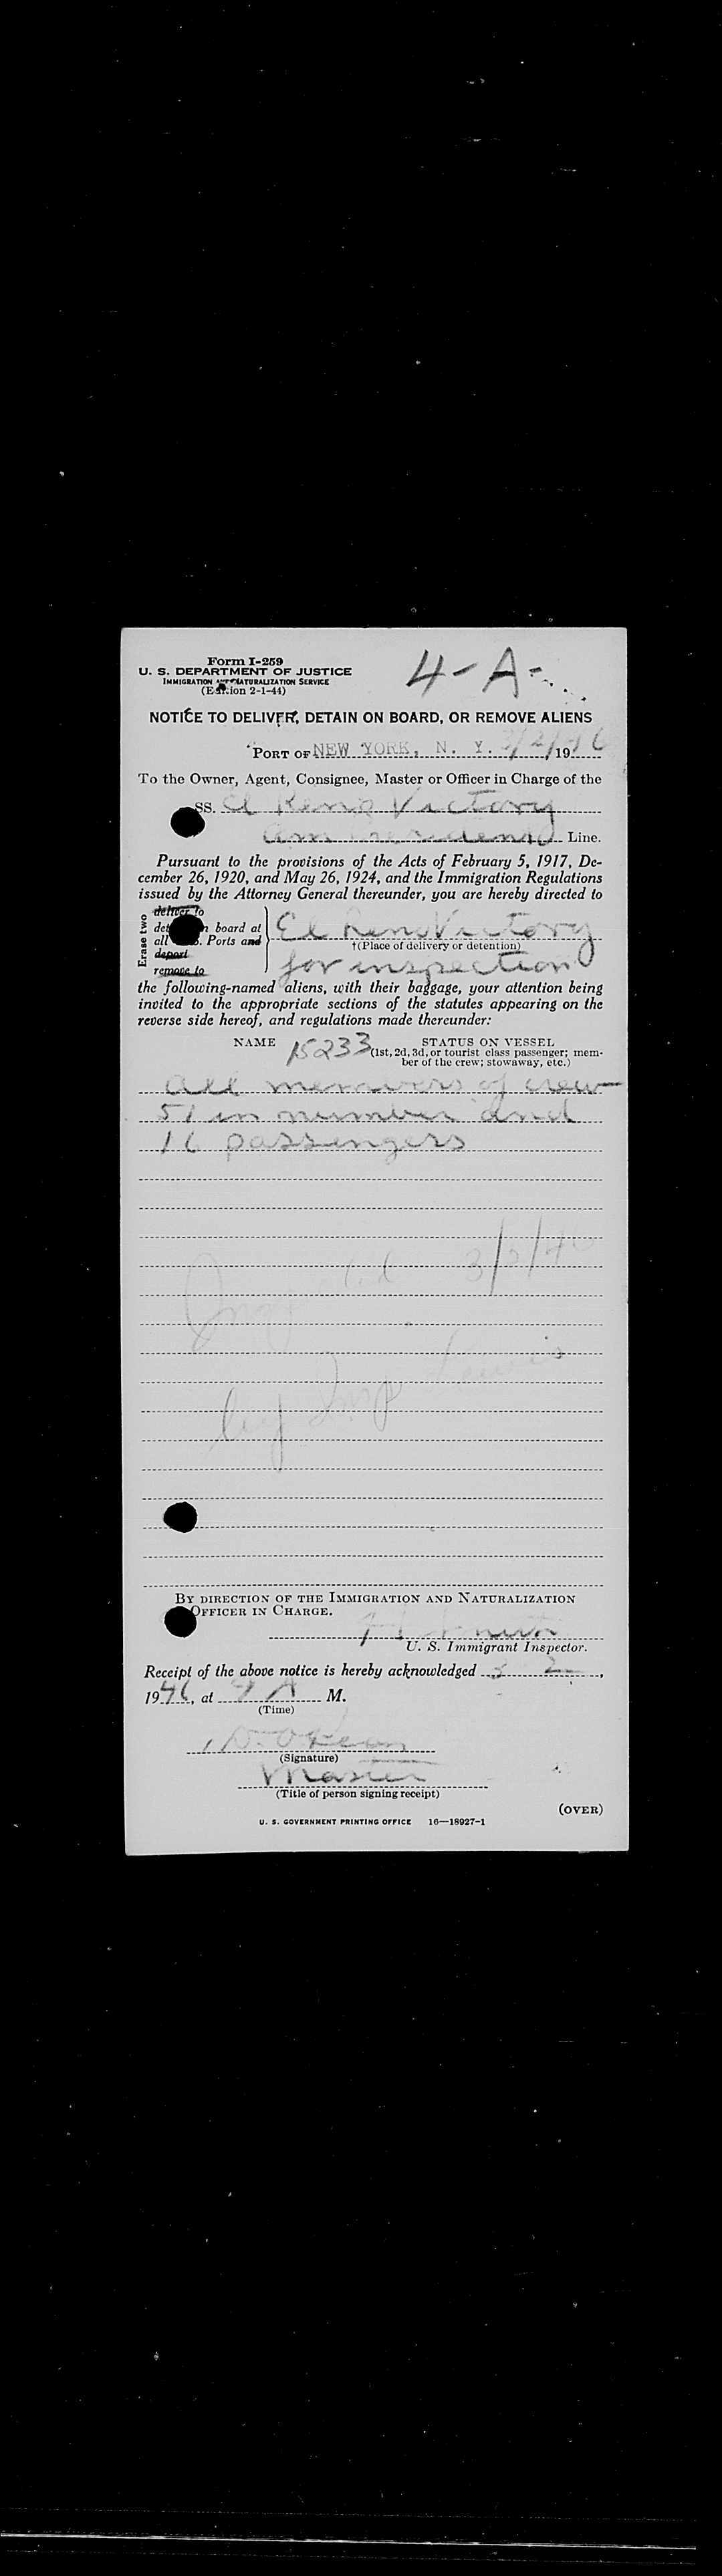 Form I-259
4-A-
U. S. DEPARTMENT OF JUSTICE
IMMIGRATION AND NATURALIZATION SERVICE
(Edition 2-1-44)
NOTICE TO DELIVER, DETAIN ON BOARD, OR REMOVE ALIENS
PORT OF NEW YORK, N. Y. 3/2/1946
To the Owner, Agent, Consignee, Master or Officer in Charge of the
SS. El Reno Victory
Am President Line.
Pursuant to the provisions of the Acts of February 5, 1917, De-
cember 26, 1920, and May 26, 1924, and the Immigration Regulations
issued by the Attorney General thereunder, you are hereby directed to
Erase two
deliver to
board at
all Ports and
deport
remove to
El Reno Victory
†(Place of delivery or detention)
for inspection
the following-named aliens, with their baggage, your attention being
invited to the appropriate sections of the statutes appearing on the
reverse side hereof, and regulations made thereunder:
NAME 15233 STATUS ON VESSEL
(1st, 2d, 3d, or tourist class passenger; mem-
ber of the crew; stowaway, etc.)
All members of crew
51 in number and
16 passengers
Inspected 3/2/46
by Insp Lewis
BY DIRECTION OF THE IMMIGRATION AND NATURALIZATION
OFFICER IN CHARGE.
U. S. Immigrant Inspector.
Receipt of the above notice is hereby acknowledged 3 2,
1946, at 9 A M.
(Time)
(Signature)
Master
(Title of person signing receipt)
(OVER)
U. S. GOVERNMENT PRINTING OFFICE 16—18927-1